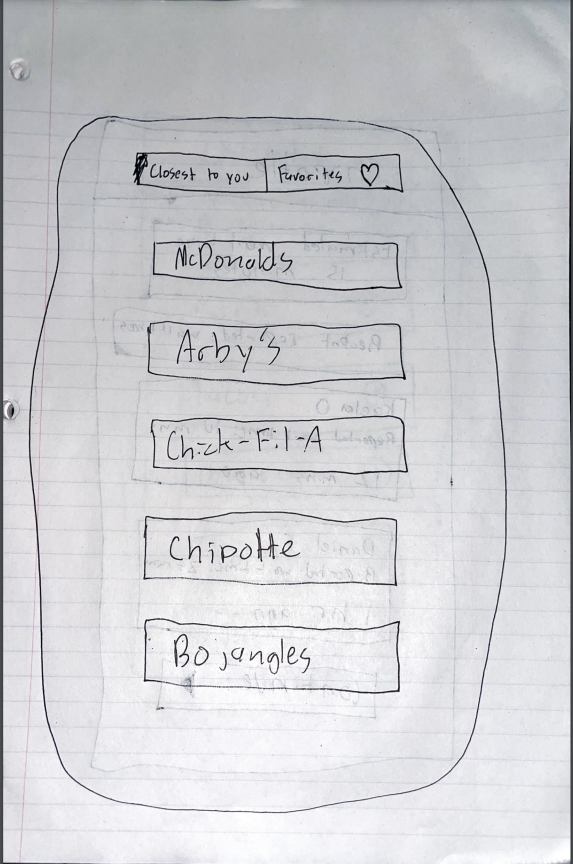 Closest to you Favorites ♡
McDonalds
Arby's
Chick-Fil-A
Chipotle
Bojangles